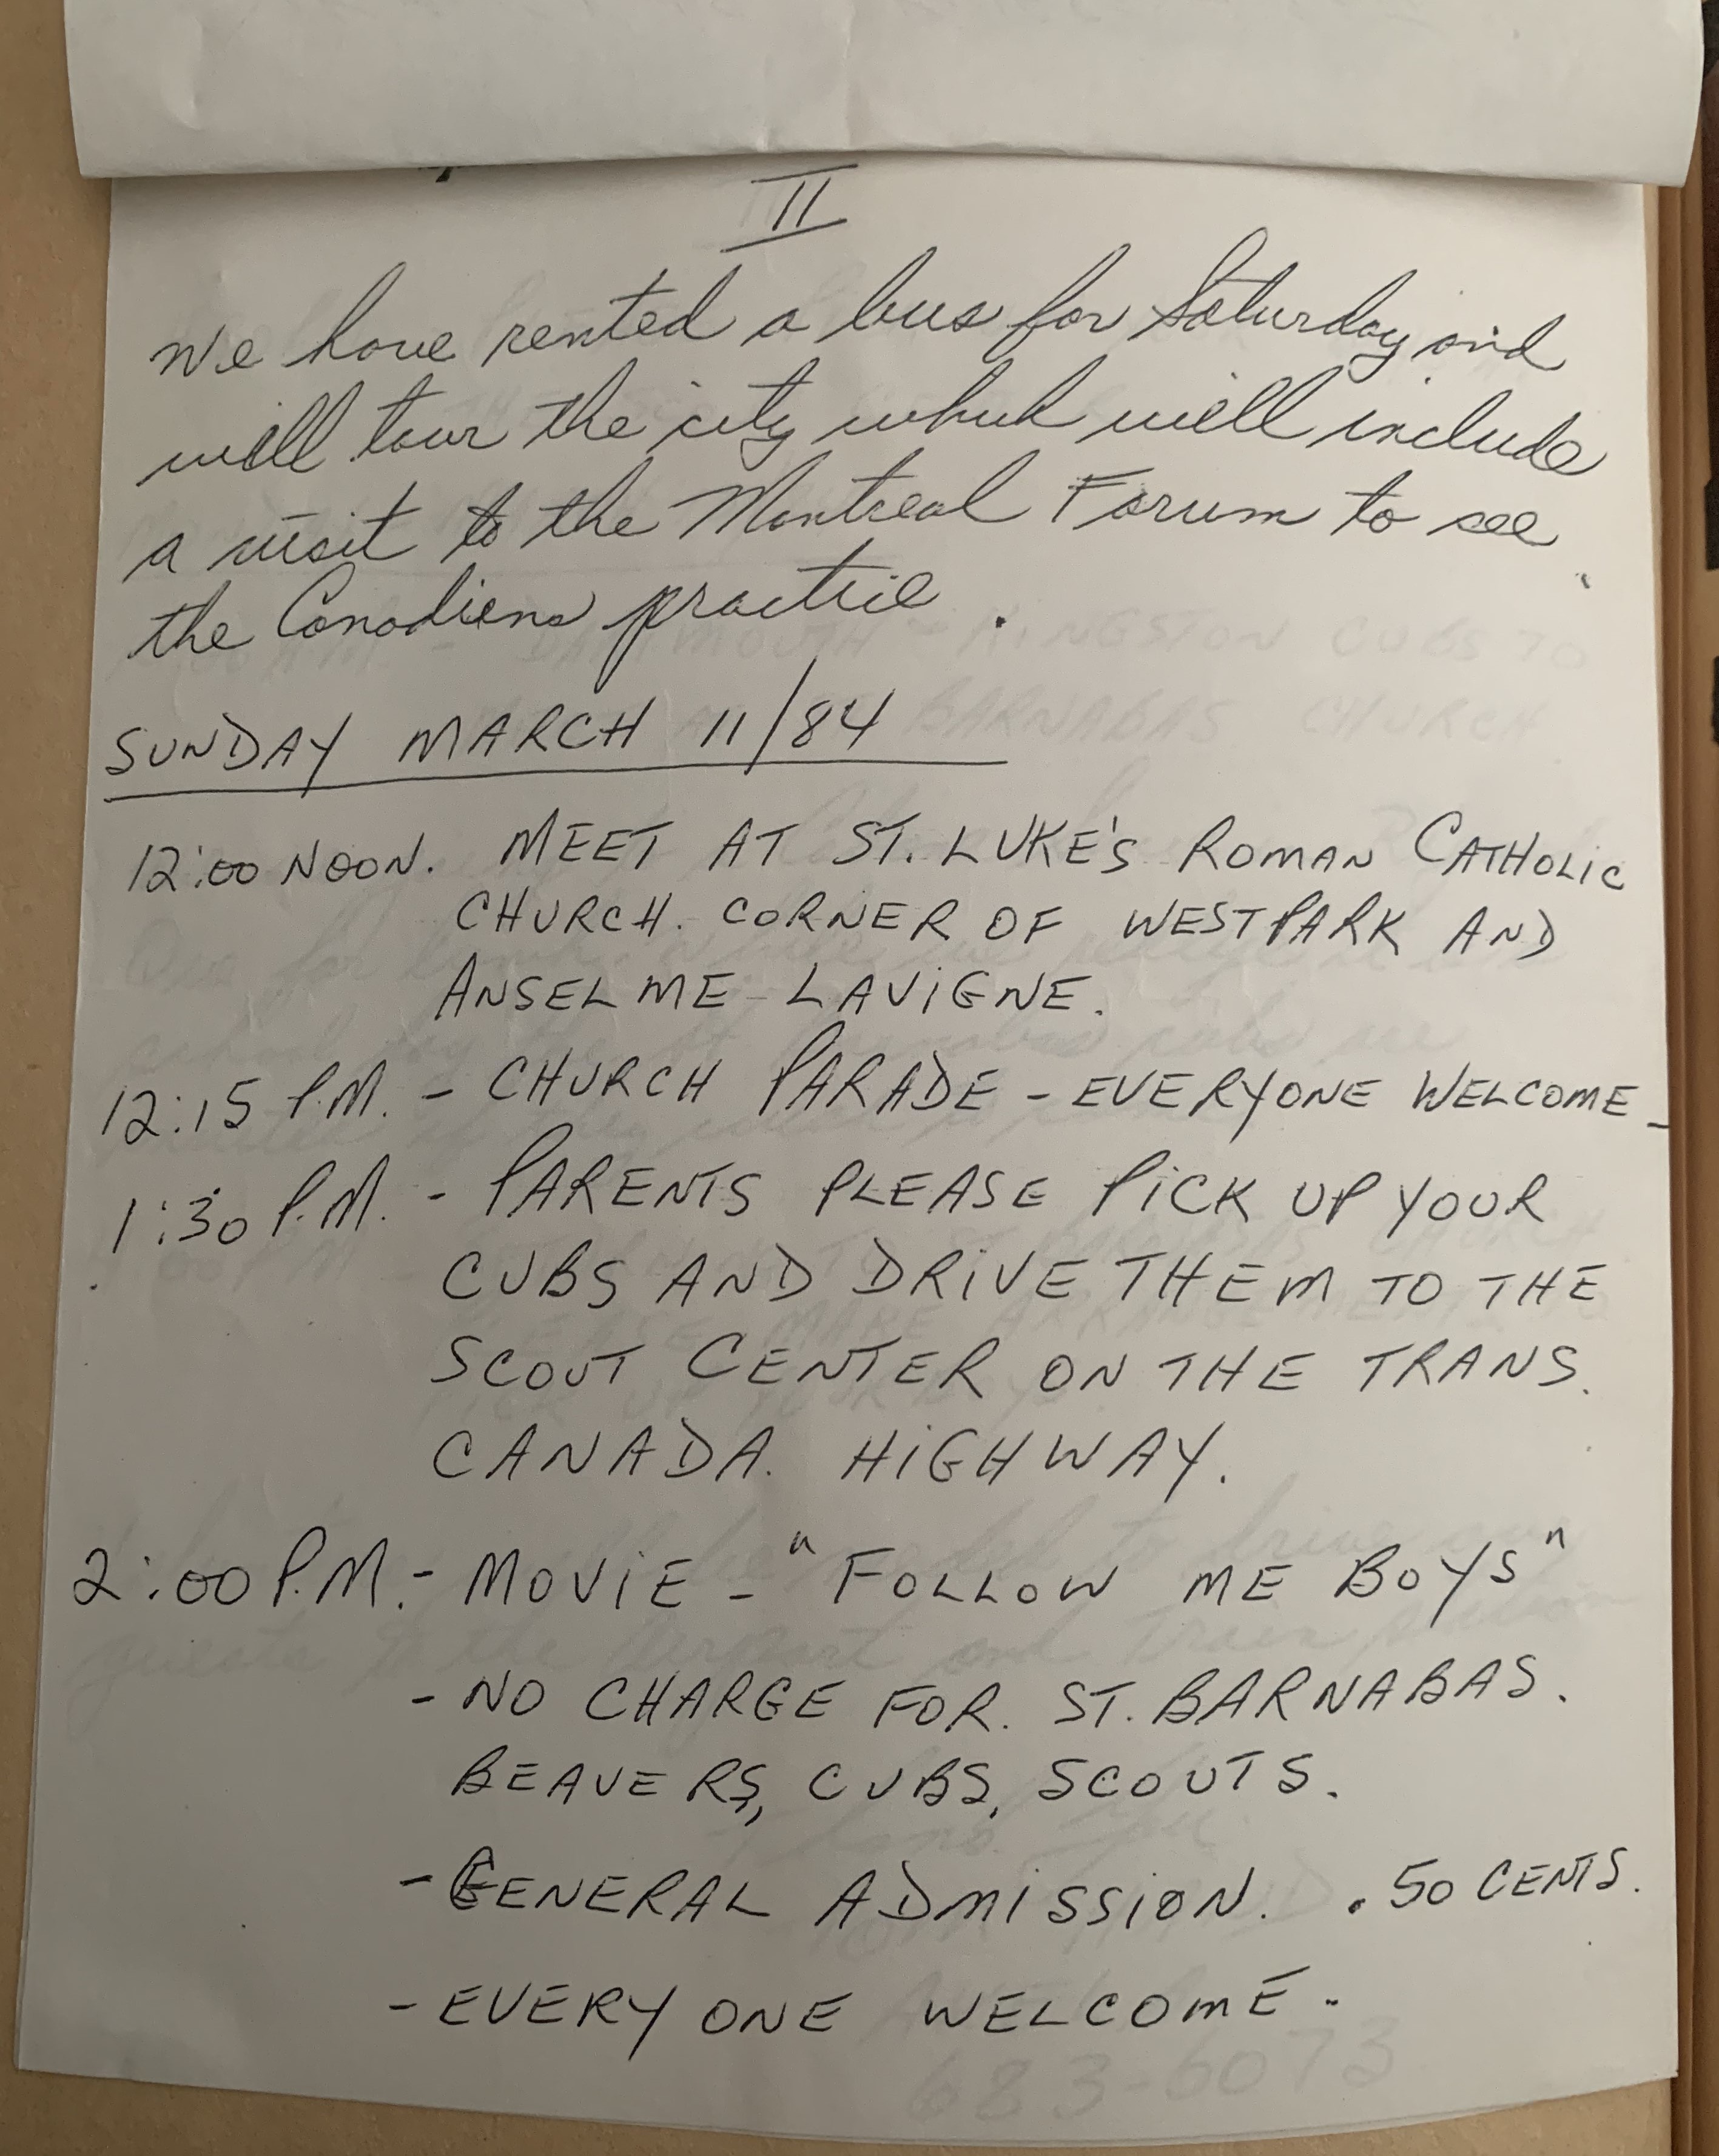 II
We have rented a bus for Saturday and
will tour the city which will include
a visit to the Montreal Forum to see
the Canadiens practice.
SUNDAY MARCH 11/84
12:00 NOON. MEET AT ST. LUKE'S ROMAN CATHOLIC
CHURCH. CORNER OF WESTPARK AND
ANSELME LAVIGNE.
12:15 P.M. - CHURCH PARADE - EVERYONE WELCOME -
1:30 P.M. - PARENTS PLEASE PICK UP YOUR
CUBS AND DRIVE THEM TO THE
SCOUT CENTER ON THE TRANS.
CANADA. HIGHWAY.
2:00 P.M. - MOVIE - "FOLLOW ME BOYS"
- NO CHARGE FOR. ST. BARNABAS.
BEAVERS, CUBS, SCOUTS.
- GENERAL ADMISSION. .50 CENTS.
- EVERY ONE WELCOME -
683-6073